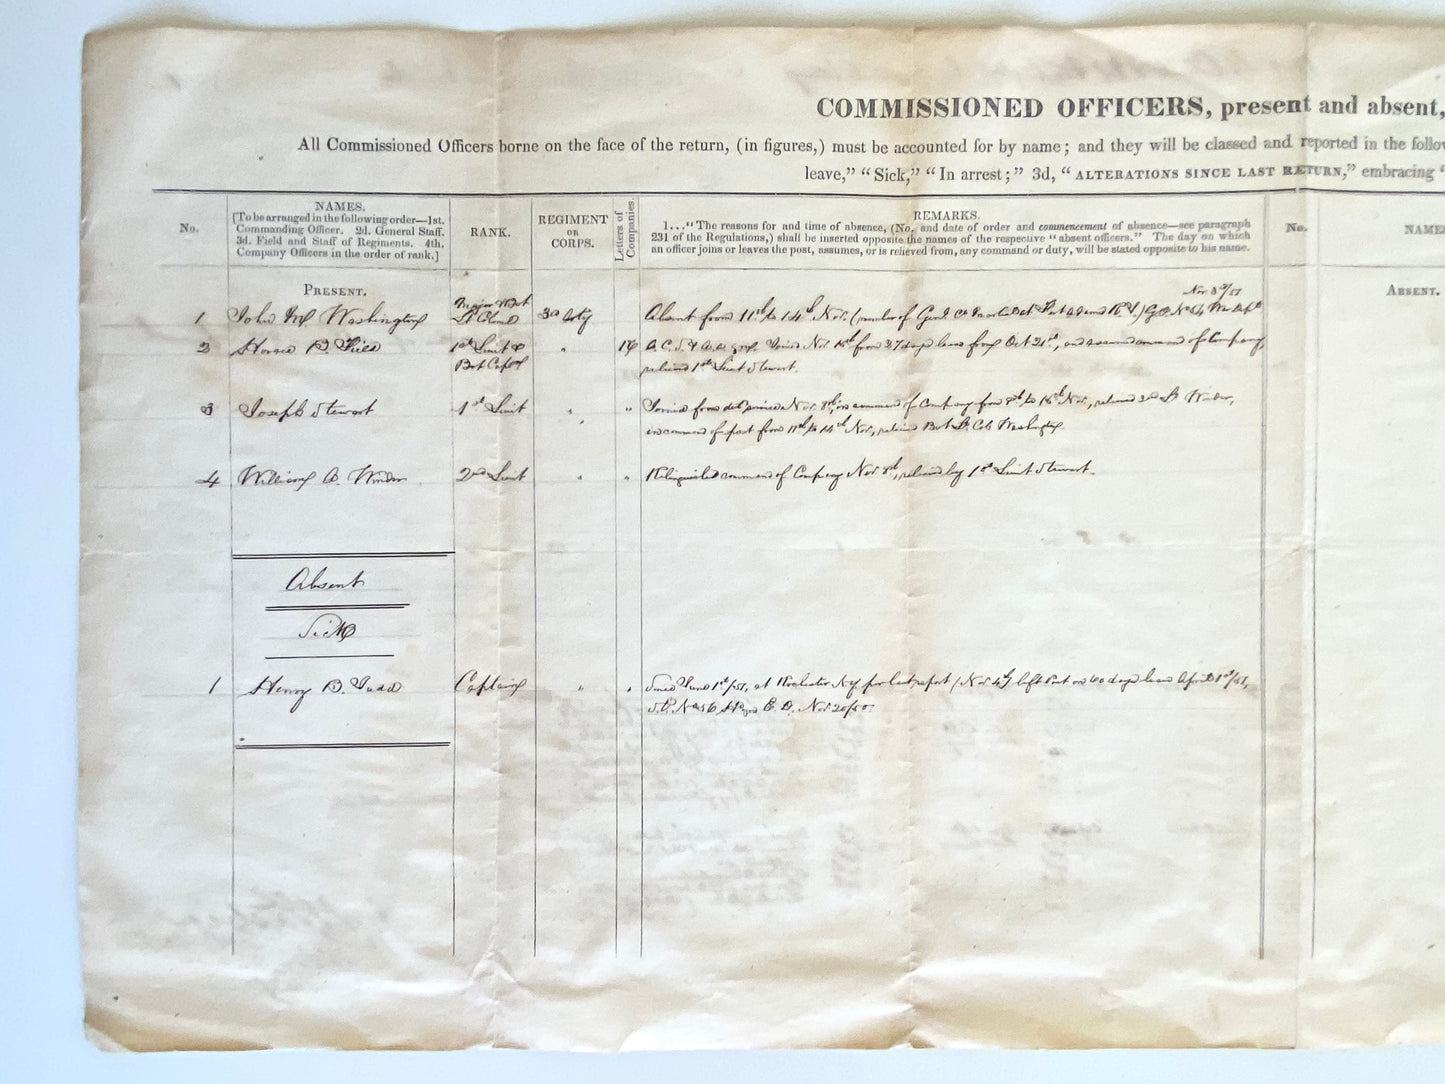 COMMISSIONED OFFICERS, present and absent,
All Commissioned Officers borne on the face of the return, (in figures,) must be accounted for by name; and they will be classed and reported in the follow
leave," "Sick," "In arrest;" 3d, "ALTERATIONS SINCE LAST RETURN," embracing "
No.
NAMES.
[To be arranged in the following order—1st.
Commanding Officer. 2d. General Staff.
3d. Field and Staff of Regiments. 4th.
Company Officers in the order of rank.]
RANK.
REGIMENT
OR
CORPS.
Letters of
Companies.
REMARKS.
1..."The reasons for and time of absence, (No. and date of order and commencement of absence—see paragraph
231 of the Regulations,) shall be inserted opposite the names of the respective "absent officers." The day on which
an officer joins or leaves the post, assumes, or is relieved from, any command or duty, will be stated opposite to his name.
No.
NAMES
PRESENT.
ABSENT.
1 John M Washington Major & Bvt Lt Col 3rd Arty Absent from 11th to 14th Nov. (member of Genl Ct Martial at
Nov. 3d/51
2 1st Lieut & Bvt Capt " Joined Nov. 15th from 27 days leave from Oct 21st, and assumed command of Company,
relieved 1st Lieut Stewart.
3 Joseph Stewart 1st Lieut " " Joined from det. service Nov. 8th, in command of Company from 8th to 15th Nov., relieved 2nd Lt Winder,
in command of post from 11th to 14th Nov., relieved Bvt Lt. Col. Washington.
4 William A. Winder 2nd Lieut " " Relinquished command of Company Nov. 8th, relieved by 1st Lieut Stewart.
Absent
Sick
1 Henry B. Judd Captain " " Since June 1st/51, at Rochester N.Y. per last report (Nov. 4th) left Post on 60 days leave April 1st/51,
S.O. No. 56, Hd Qrs E.D. Nov. 20/50.